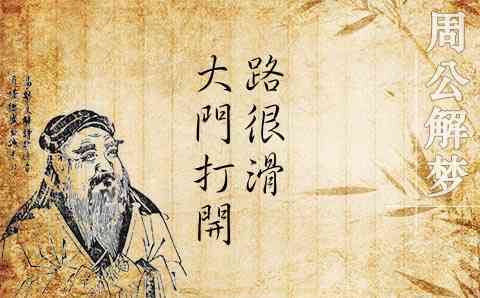 周公解梦
路很滑
大門打開